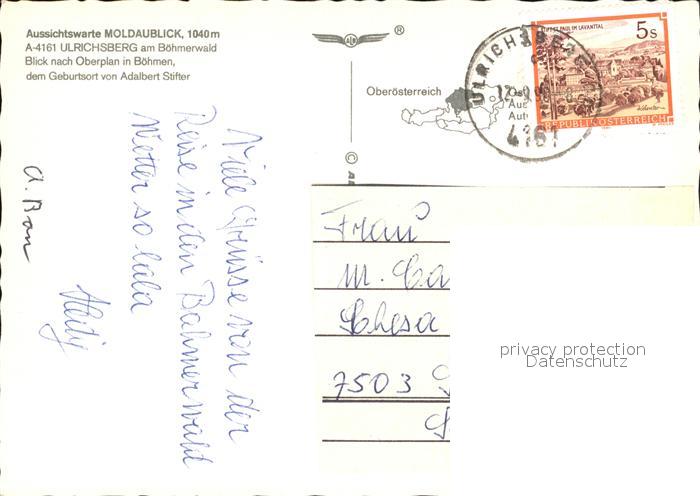 Aussichtswarte MOLDAUBLICK, 1040m
A-4161 ULRICHSBERG am Böhmerwald
Blick nach Oberplan in Böhmen,
dem Geburtsort von Adalbert Stifter
®
Oberösterreich
ULRICHSBERG
4161
STIFT ST. PAUL IM LAVANTTAL
5s
REPUBLIK ÖSTERREICH
©
Viele Grüsse von der
Reise in den Bahmerwald
Wetter so lala
Hedy
Frau
M. Ca
Chesa
7503
privacy protection
Datenschutz